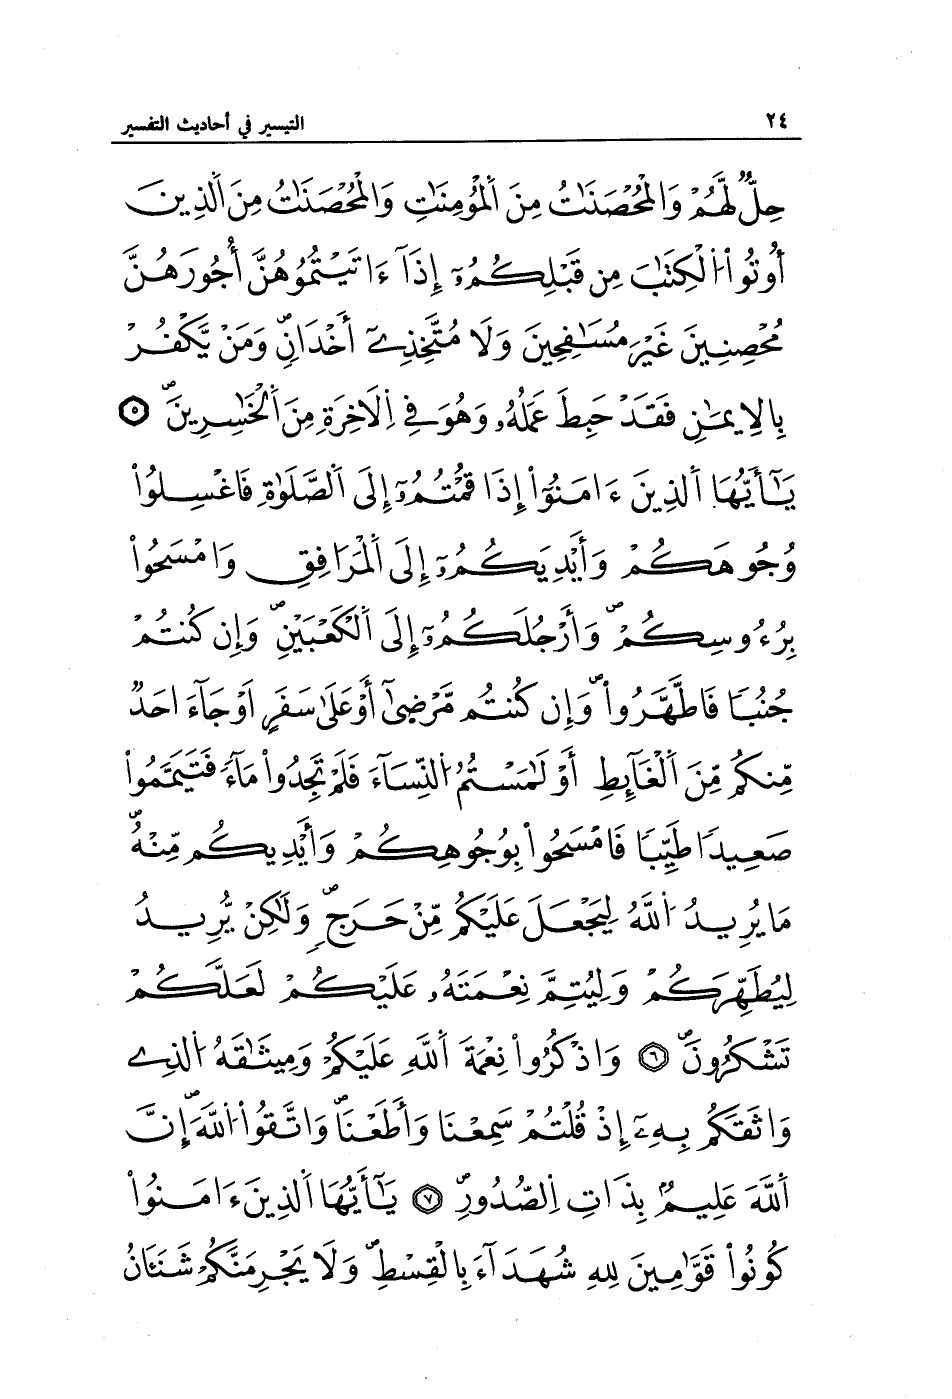 ٢٤ التيسير في أحاديث التفسير
حِلٌّ لَّهُمْ وَالْمُحْصَنَٰتُ مِنَ اَلْمُؤْمِنَٰتِ وَالْمُحْصَنَٰتُ مِنَ اَلذِينَ
أُوتُواْ اُلْكِتَٰبَ مِن قَبْلِكُمُۥٓ إِذَآ ءَاتَيْتُمُوهُنَّ أُجُورَهُنَّ
مُحْصِنِينَ غَيْرَ مُسَٰفِحِينَ وَلَا مُتَّخِذِےٓ أَخْدَانٍۖ وَمَنْ يَّكْفُرْ
بِالِايمَٰنِ فَقَدْ حَبِطَ عَمَلُهُۥ وَهُوَ فِے اِلَاخِرَةِ مِنَ اَلْخَٰسِرِينَۖ ٥
يَٰٓأَيُّهَا اَلذِينَ ءَامَنُوٓاْ إِذَا قُمْتُمُۥٓ إِلَى اَلصَّلَوٰةِ فَاغْسِلُواْ
وُجُوهَكُمْ وَأَيْدِيَكُمُۥٓ إِلَى اَلْمَرَافِقِ وَامْسَحُواْ
بِرُءُوسِكُمْۖ وَأَرْجُلَكُمُۥٓ إِلَى اَلْكَعْبَيْنِۖ وَإِن كُنتُمْ
جُنُبًا فَاطَّهَّرُواْۖ وَإِن كُنتُم مَّرْض۪ىٰٓ أَوْ عَلَىٰ سَفَرٍ اَوْ جَآءَ احَدٌ
مِّنكُم مِّنَ اَلْغَآئِطِ أَوْ لَٰمَسْتُمُ اُلنِّسَآءَ فَلَمْ تَجِدُواْ مَآءً فَتَيَمَّمُواْ
صَعِيدًا طَيِّبًا فَامْسَحُواْ بِوُجُوهِكُمْ وَأَيْدِيكُم مِّنْهُۖ
مَا يُرِيدُ اُللَّهُ لِيَجْعَلَ عَلَيْكُم مِّنْ حَرَجٍۖ وَلَٰكِنْ يُّرِيدُ
لِيُطَهِّرَكُمْ وَلِيُتِمَّ نِعْمَتَهُۥ عَلَيْكُمْ لَعَلَّكُمْ
تَشْكُرُونَۖ ٦ وَاذْكُرُواْ نِعْمَةَ اَللَّهِ عَلَيْكُمْ وَمِيثَٰقَهُ اُلذِے
وَاثَقَكُم بِهِۦٓ إِذْ قُلْتُمْ سَمِعْنَا وَأَطَعْنَاۖ وَاتَّقُواْ اُللَّهَۖ إِنَّ
اَللَّهَ عَلِيمٌۢ بِذَاتِ اِلصُّدُورِۖ ٧ يَٰٓأَيُّهَا اَلذِينَ ءَامَنُواْ
كُونُواْ قَوَّٰمِينَ لِلهِ شُهَدَآءَ بِالْقِسْطِۖ وَلَا يَجْرِمَنَّكُمْ شَنَـَٔانُ